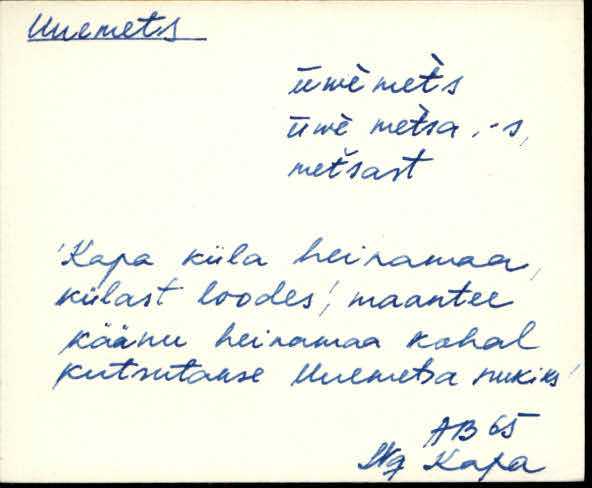 Uuemets
ūwè met̀s
ūwè met̀sa, -s,
metšast
'Kapa küla heinamaa,
külast loodes', maantee
käänu heinamaa kohal
kutsutakse Uuemetsa nukiks'
AB 65
Kapa